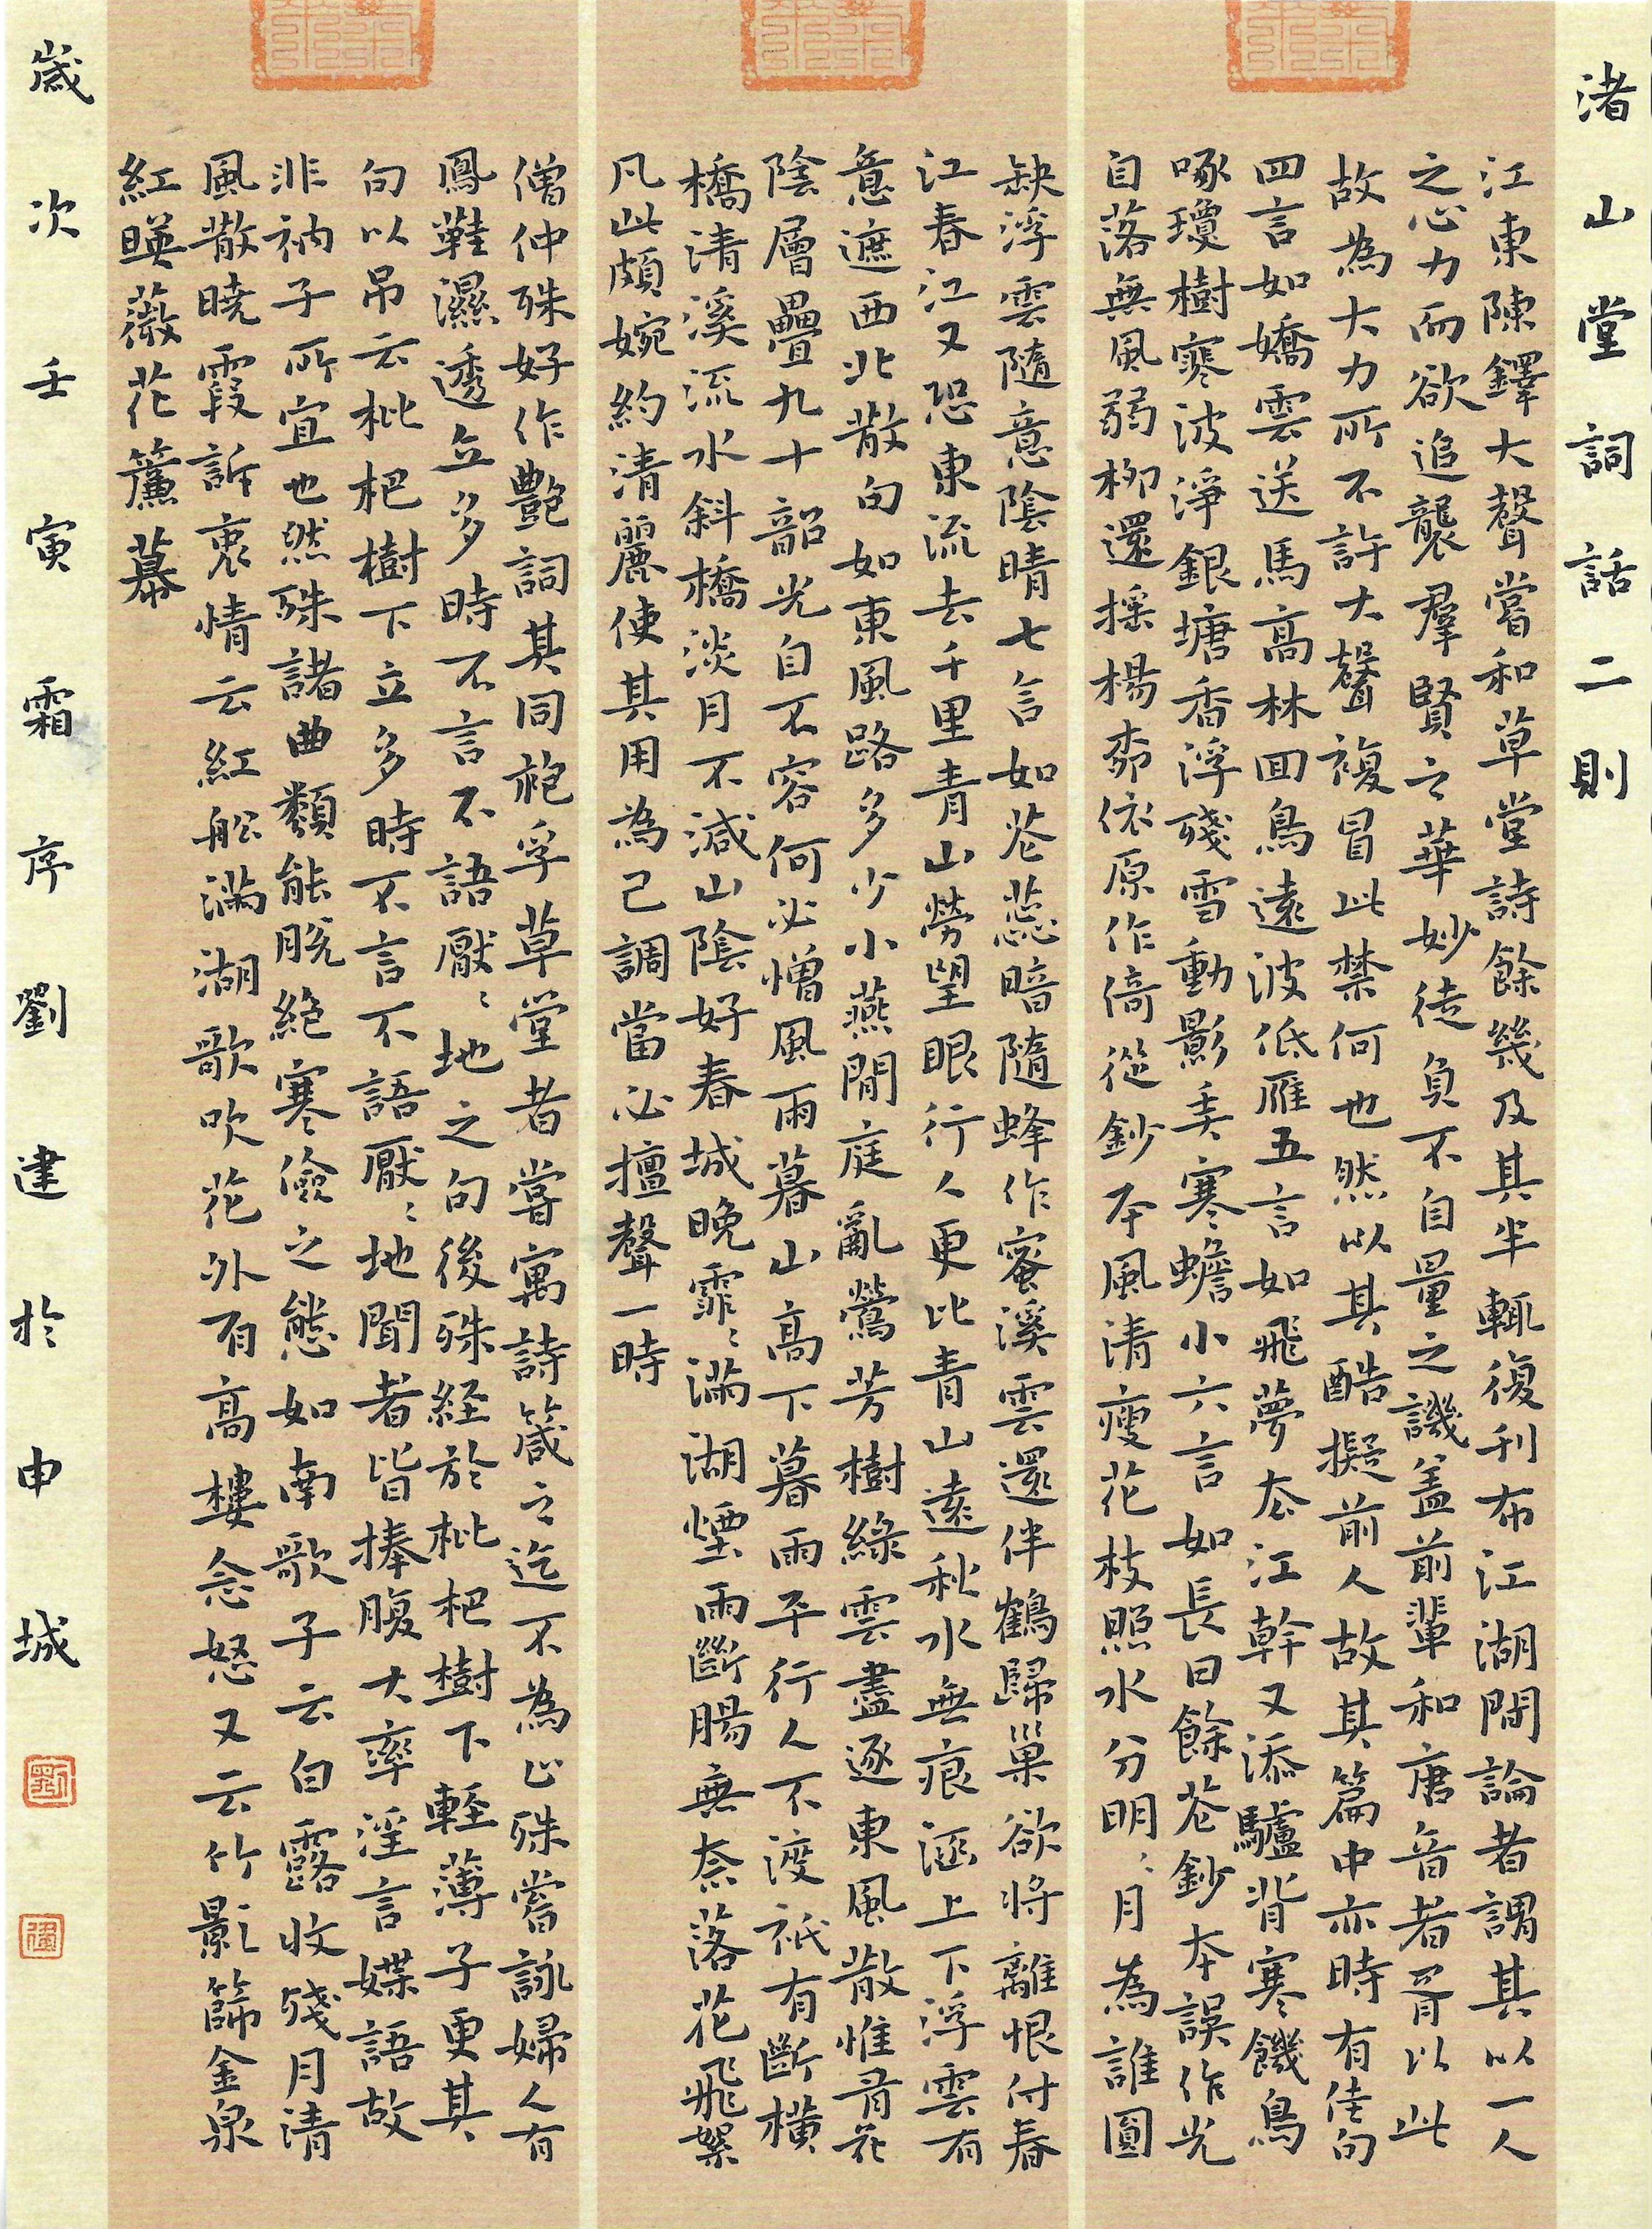 渚山堂詞話二則
江東陳鐸大聲嘗和草堂詩餘幾及其半輒復刊布江湖間論者謂其以一人
之心力而欲追襲羣賢之華妙徒負不自量之譏蓋前輩和唐音者胥以此
故為大力所不許大聲複冒此禁何也然以其酷擬前人故其篇中亦時有佳句
四言如嬌雲送馬高林回鳥遠波低雁五言如飛夢去江幹又添驢背寒饑鳥
啄瓊樹寒波淨銀塘香浮殘雪動影美寒蟾小六言如長日餘花鈔本誤作光
自落無風弱柳還搖楊柳依原作倚從鈔本風清瘦花枝照水分明明月為誰圓
缺浮雲隨意陰晴七言如花蕊暗隨蜂作蜜溪雲還伴鶴歸巢欲將離恨付春
江春江又恐東流去千里青山勞望眼行人更比青山遠秋水無痕涵上下浮雲有
意遮西北散句如東風路多少小燕閒庭亂鶯芳樹綠雲盡逐東風散惟有花
陰層疊九十韶光自不容何必憎風雨暮山高下暮雨平行人不渡祇有斷橫
橋清溪流水斜橋淡月不減山陰好春城晚霏霏滿湖煙雨斷腸無奈落花飛絮
凡此頗婉約清麗使其用為己調當必擅聲一時
僧仲殊好作艷詞其同袍孚草堂者嘗寓詩箴之迄不為止殊嘗詠婦人有
鳳鞋濕透立多時不言不語厭厭地之句後殊経於枇杷樹下輕薄子更其
句以吊云枇杷樹下立多時不言不語厭厭地聞者皆捧腹大率淫言媟語故
非衲子所宜也然殊諸曲類能脫絕寒儉之態如南歌子云白露收殘月清
風散曉霞訴衷情云紅船滿湖歌吹花外有高樓念怒又云竹影篩金泉
紅暎薇花簾幕
歲次壬寅霜序劉建於申城